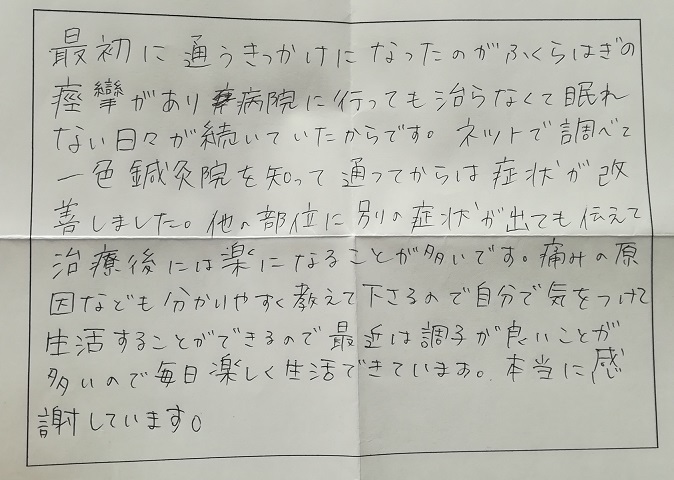 最初に通うきっかけになったのがふくらはぎの
痙攣があり病院に行っても治らなくて眠れ
ない日々が続いていたからです。ネットで調べて
一色鍼灸院を知って通ってからは症状が改
善しました。他の部位に別の症状が出ても伝えて
治療後には楽になることが多いです。痛みの原
因なども分かりやすく教えて下さるので自分で気をつけて
生活することができるので最近は調子が良いことが
多いので毎日楽しく生活できています。本当に感
謝しています。